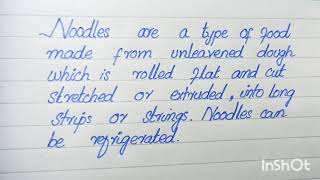 Noodles are a type of food
made from unleavened dough
which is rolled flat and cut
stretched or extruded, into long
strips or strings. Noodles can
be refrigerated.
InShOt